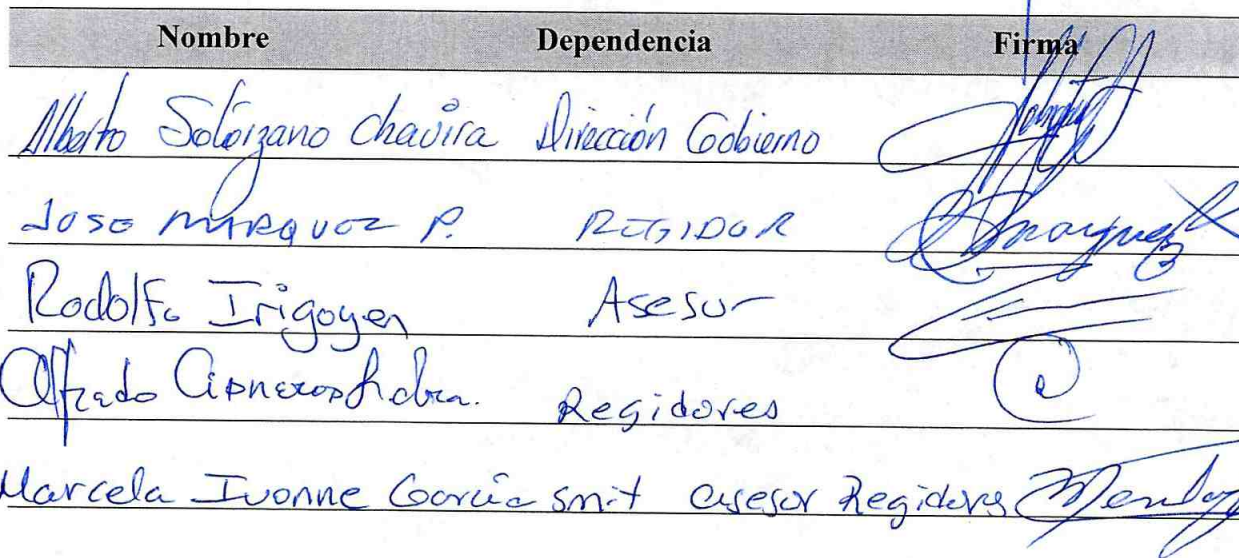 Nombre Dependencia Firma
Alberto Solórzano Chavira Dirección Gobierno
JOSE MARQUEZ P. REGIDOR Marquez
Rodolfo Irigoyen Asesor
Alfredo Cisneros Regidores
Marcela Ivonne García Smit asesor Regidores